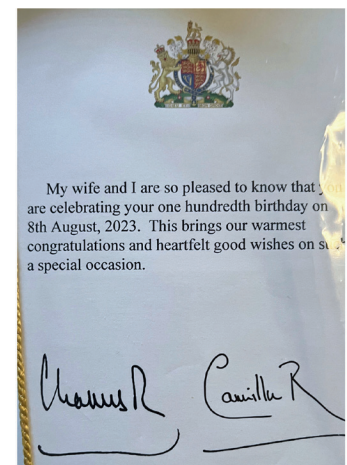 My wife and I are so pleased to know that you
are celebrating your one hundredth birthday on
8th August, 2023. This brings our warmest
congratulations and heartfelt good wishes on
a special occasion.
Charles R
Camilla R